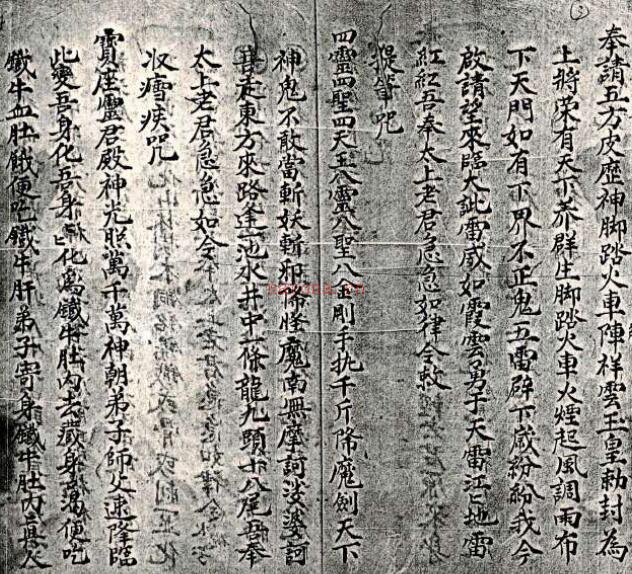 奉請五方皮歷神脚踏火車陣祥雲玉皇勅封為
上將荣有天下养群生脚踏火車火煙起風調雨布
下天門如有下界不正鬼五雷辟下碎紛紛我今
啟請望來臨大訨雷威如霞雲男于天雷江上地雷
紅紅吾奉太上老君急急如律令敕
提筆咒
四靈四聖四天玉八靈八聖八玉則手执千斤降魔劍天下
神鬼不敢當斬妖輯邪怖怪魔南無摩訶波婆訶
其走東方來路逢池水井中一條龍九頭十八尾吾奉
太上老君急急如令
收瘧疾咒
寶座靈君殿神光照萬千萬神朝弟子師父速降臨
此變吾身化吾身上化為鐵牛肚內去藏身蕩便吃
鐵牛血肚餓便吃鐵牛肝弟子寄身鐵牛肚內長火